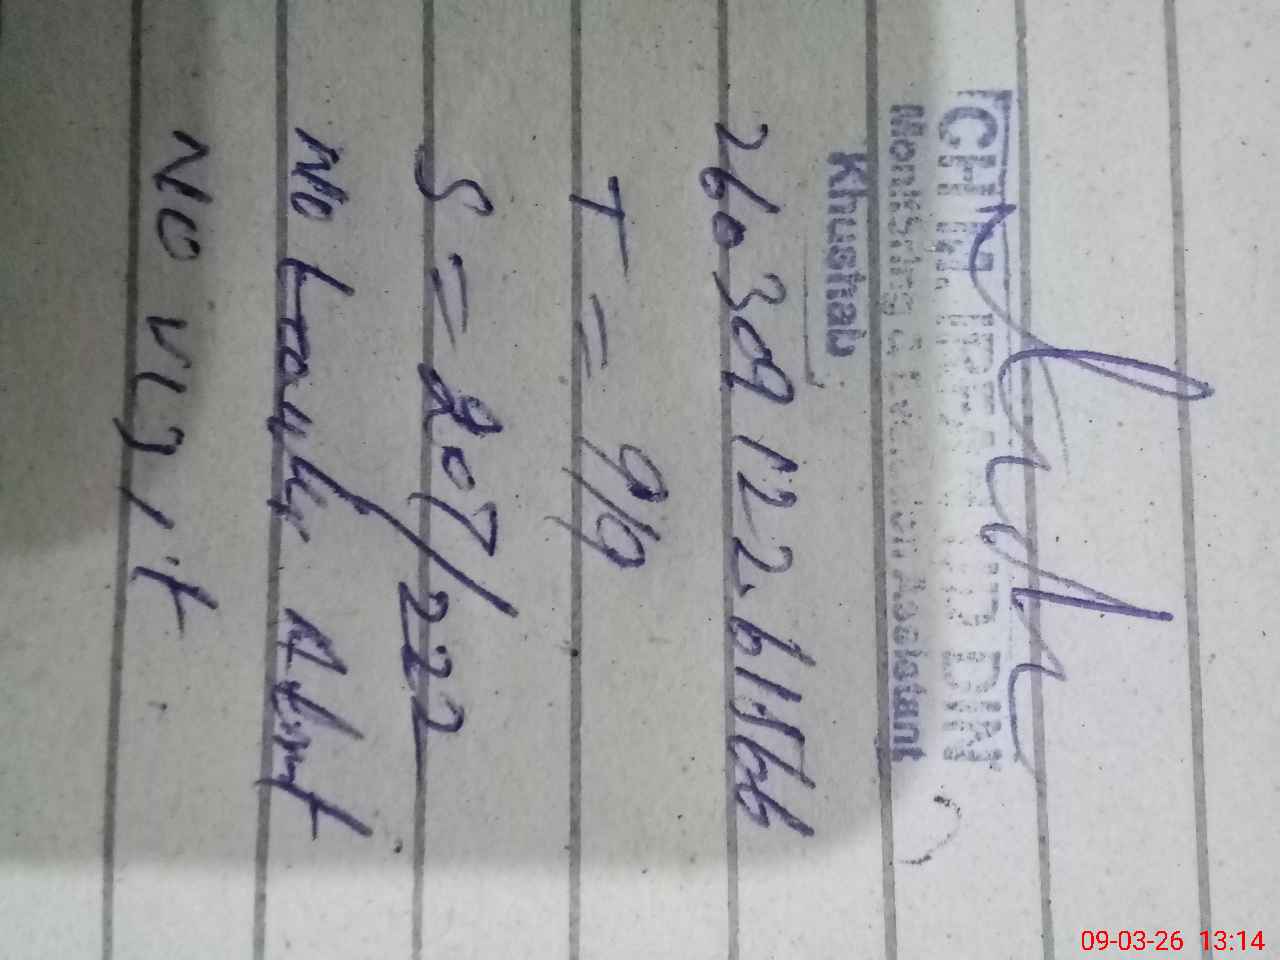 CH M. IRFAN UD DIN
Monitoring & Evaluation Assistant
Khushab
260309 122.61166
T = 9/9
S = 207/222
No Leave Abnt
No Visit
09-03-26 13:14